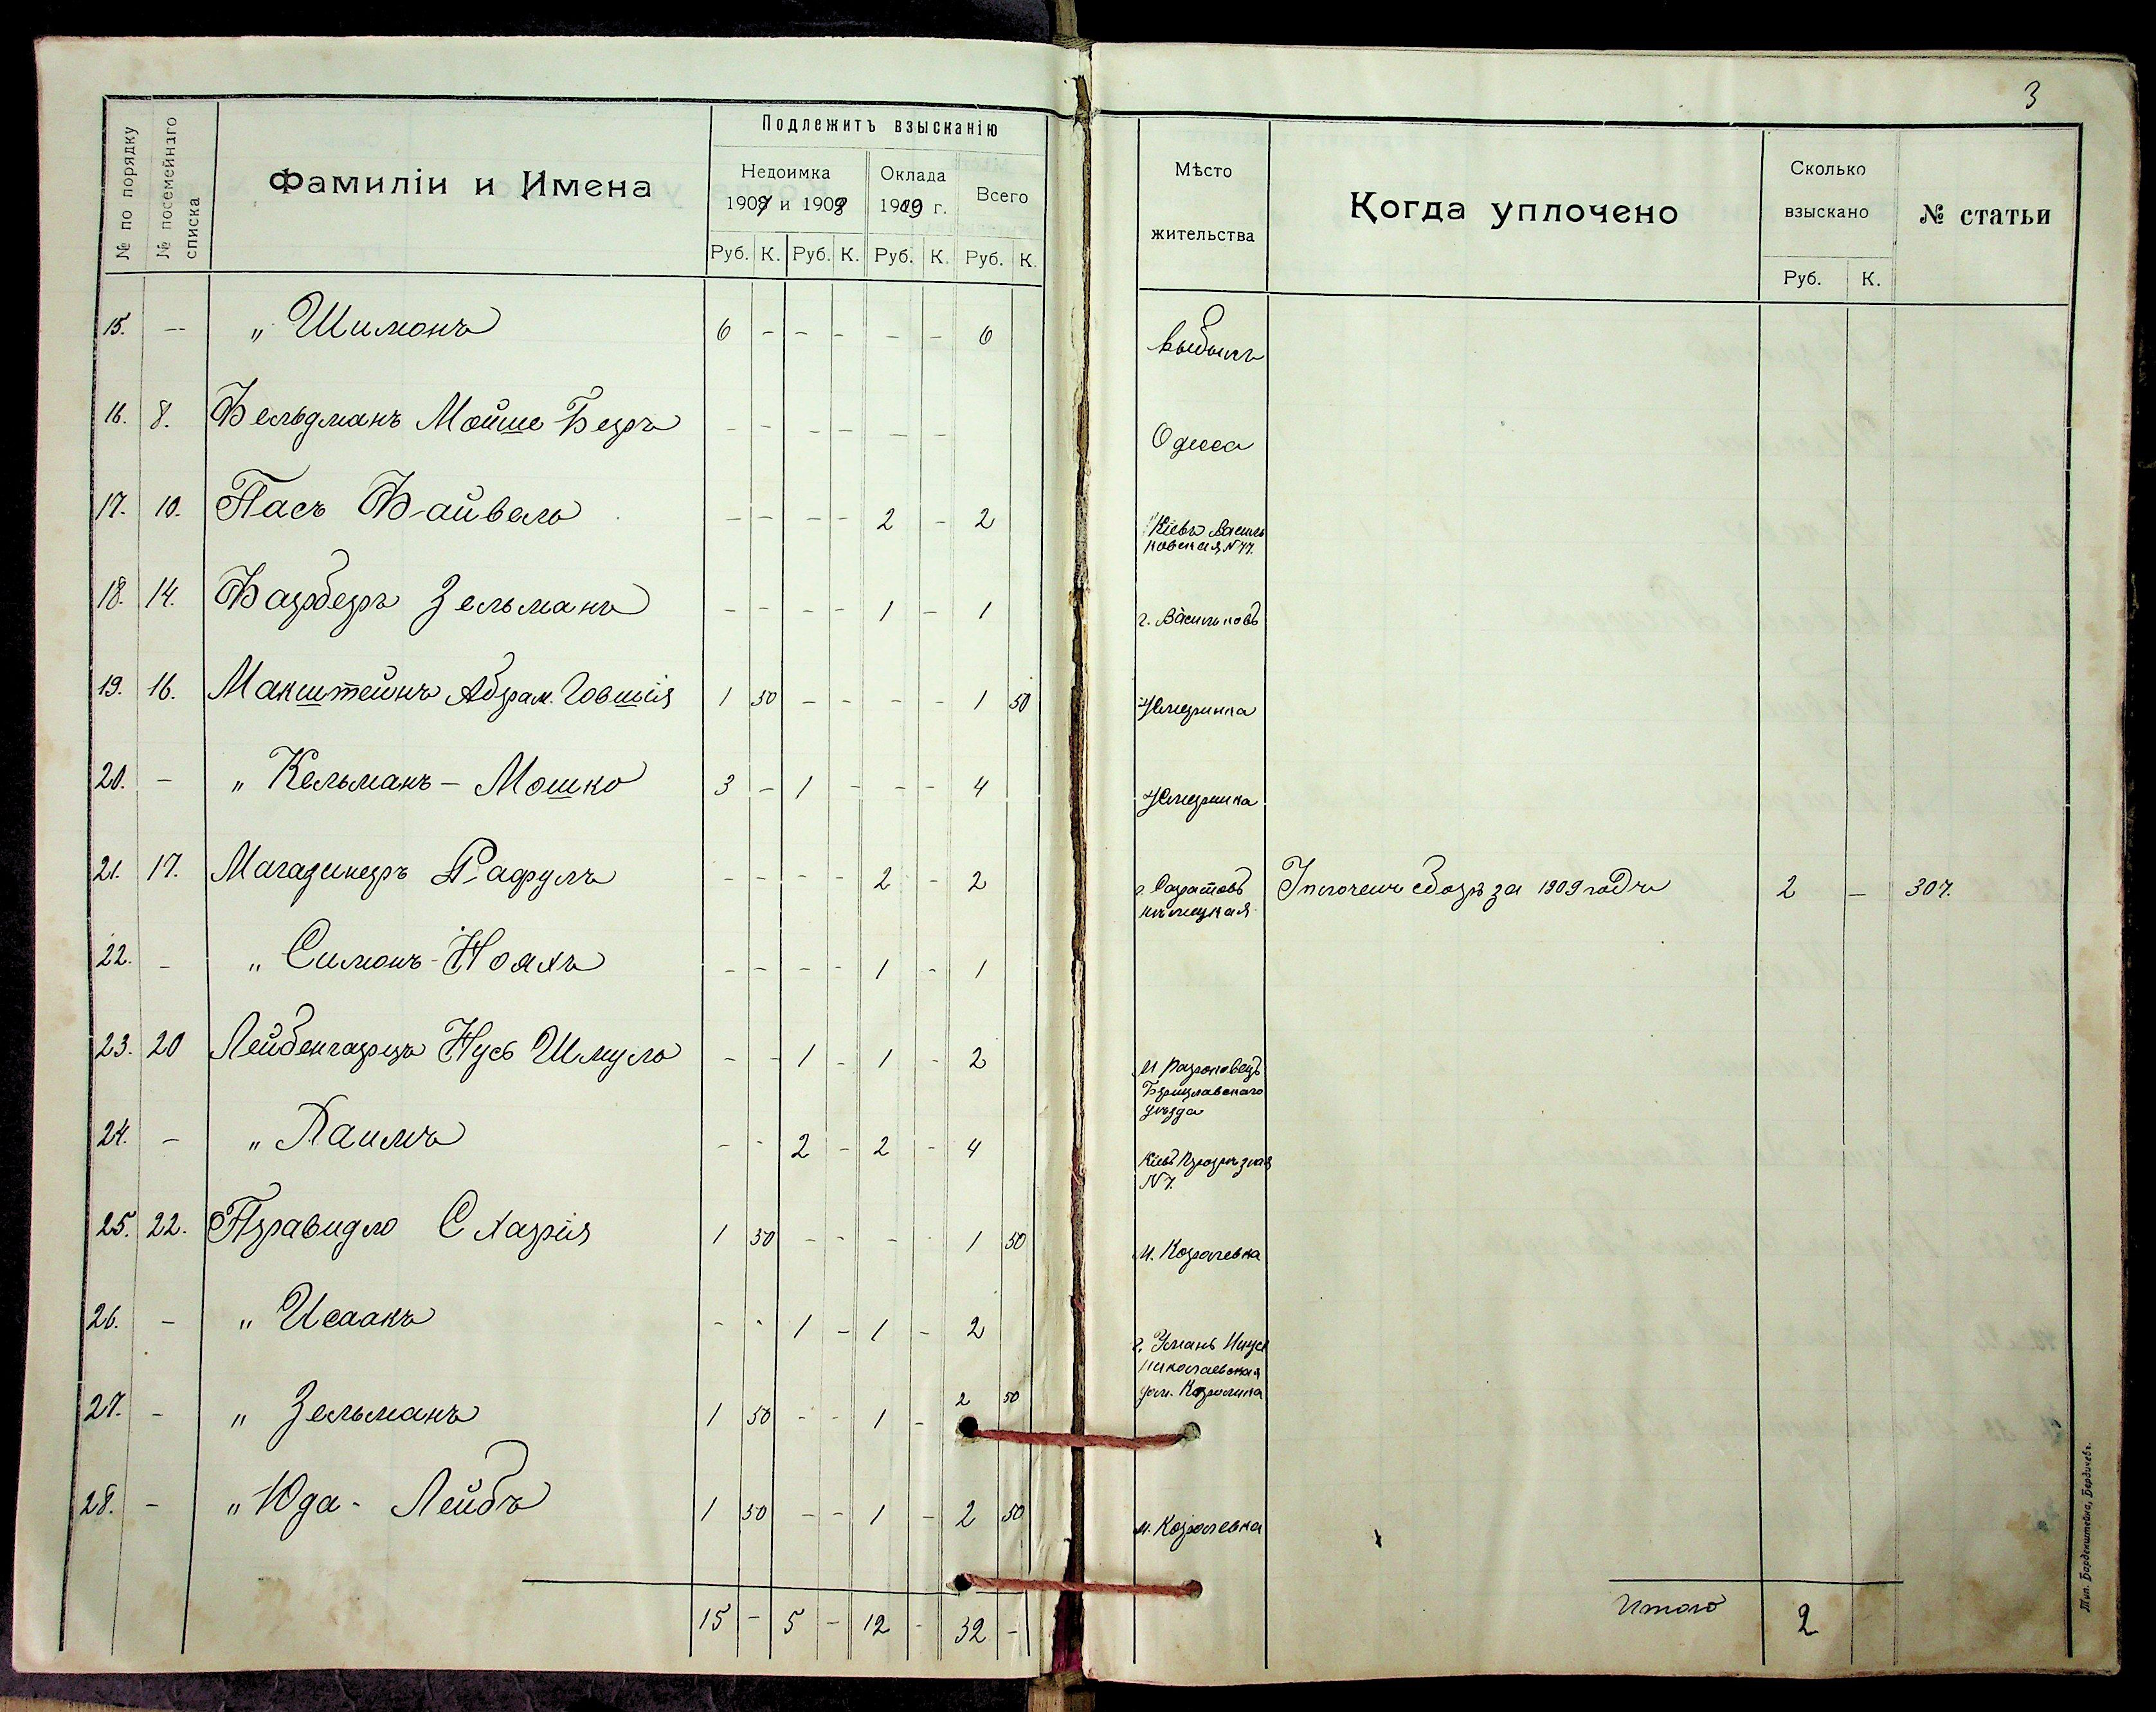 3
№ по порядку
№ посемейнаго списка
Фамиліи и Имена
Подлежитъ взысканію
Недоимка 1907 и 1908
Оклада 1909 г.
Всего
Руб. К. Руб. К. Руб. К. Руб. К.
Мѣсто жительства
Когда уплочено
Сколько взыскано
Руб. К.
№ статьи
15. -- „ Шимонъ 6 - - - - - 6 выбылъ
16. 8. Фельдманъ Мойше Беръ - - - - - - Одесса
17. 10. Пасъ Файвель - - - - 2 - 2 Кіевъ Василь
ковская, N 77.
18. 14. Фарберъ Зельманъ - - - - 1 - 1 г. Васильковъ
19. 16. Макштейнъ Абрам. Говшія 1 50 - - - - 1 50 Жмеринка
20. - „ Кельманъ - Мошко 3 - 1 - - - 4 Жмеринка
21. 17. Магазинеръ Рафулъ - - - - 2 - 2 г. Саратовъ Уплоченъ сборъ за 1909 годъ 2 - 307.
нѣмецкая
22. - „ Симонъ-Нояхъ - - - - 1 - 1
23. 20 Лейбенгарцъ Нусъ Шмуль - - 1 - 1 - 2
Брацлавскаго
уѣзда
24. - „ Хаимъ - - 2 - 2 - 4 Кіевъ
N 7.
25. 22. Правидло Схарія 1 50 - - - - 1 50 м.
26. - „ Исаакъ - - 1 - 1 - 2 г. Умань
Николаевская
27. - „ Зельманъ 1 50 - - 1 - 2 50
28. - „ Юда - Лейбъ 1 50 - - 1 - 2 50 м.
15 - 5 - 12 - 32 -
Итого 2
Тип. Барденштейна, Бердичевъ.